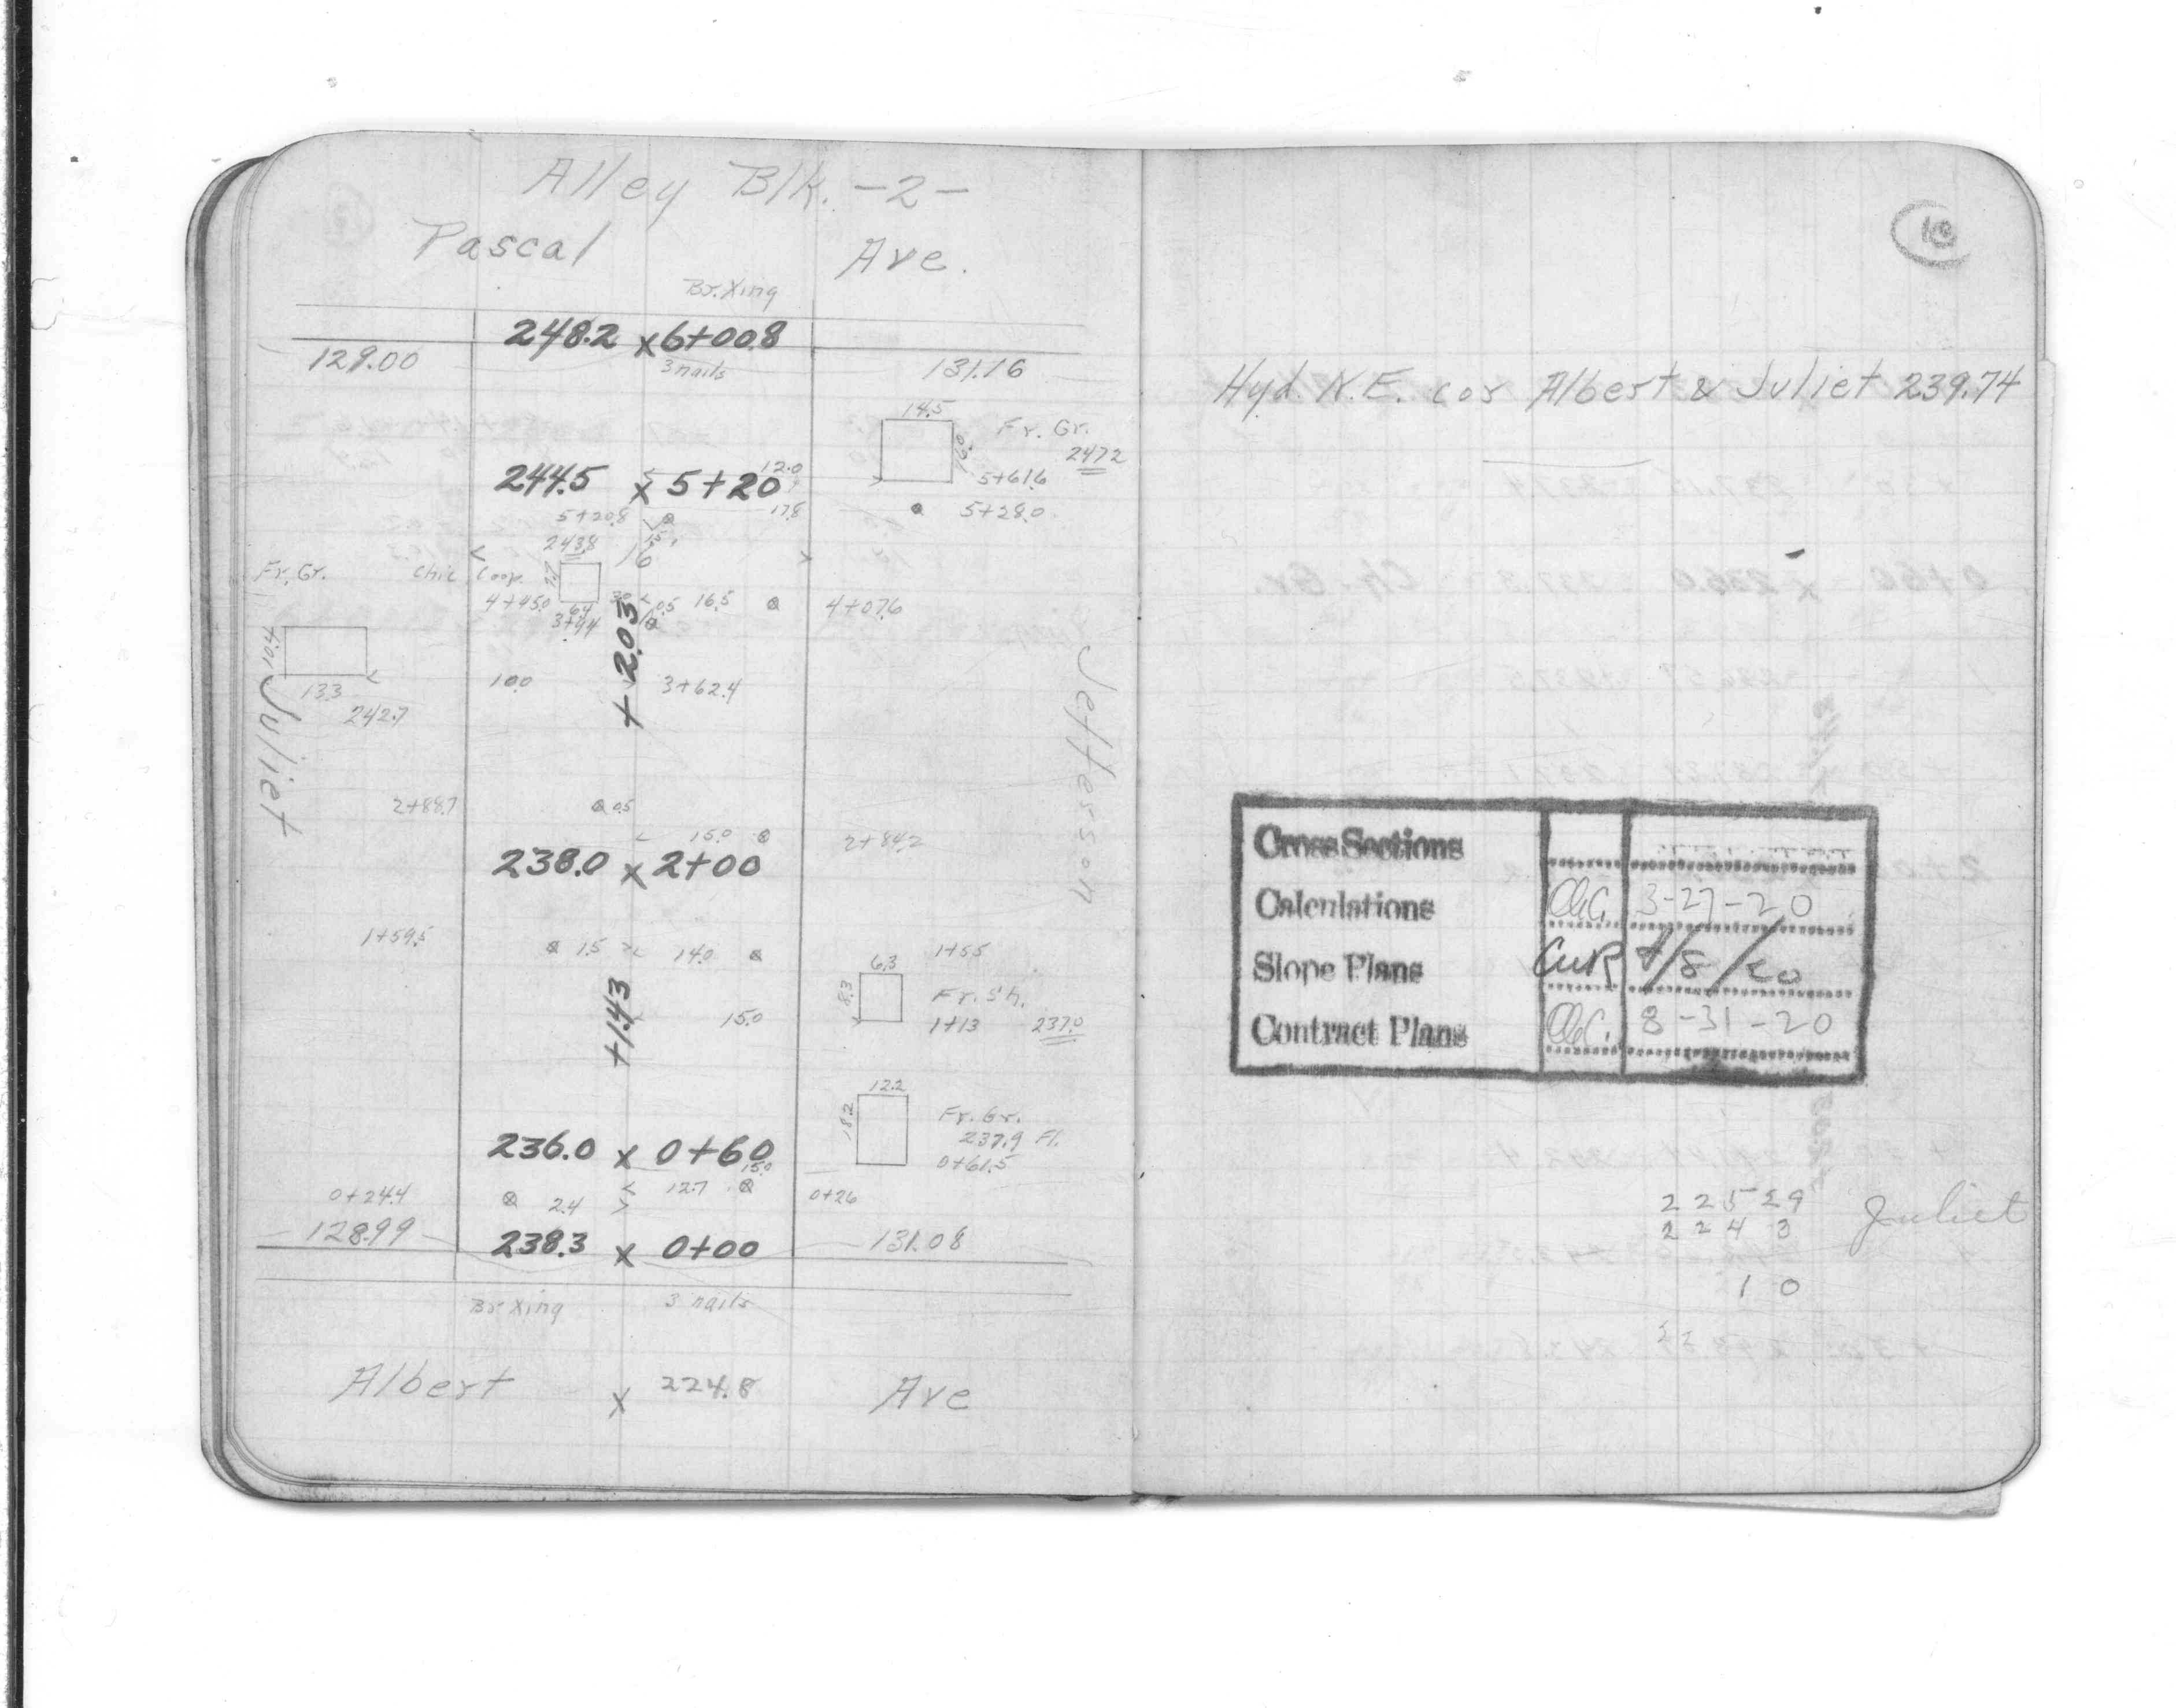 Alley Blk. -2-
Pascal Ave.
Br. Xing
248.2 x 6+00.8
3 nails
129.00 131.16
14.5
16.0
Fr. Gr.
247.2
5+61.6
12.0
244.5 x 5+20
17.8
5+28.0
5+20.8
243.8
16
Fr. Gr.
Chic. Coop.
4+45.0 6.4 0.5 16.5 4+07.6
3+44
+2.03
13.3
242.7
10.0 3+62.4
Juliet
Jefferson
2+88.7 0.5
15.0 2+84.2
238.0 x 2+00
1+59.5 1.5 14.0
6.3 1+55
8.3 Fr. Sh.
15.0 1+13 237.0
+1.43
12.2
18.2
Fr. Gr.
237.9 Fl.
0+61.5
236.0 x 0+60
15.0
0+24.4 2.4 12.7 0+26
128.99 238.3 x 0+00 131.08
Br. Xing 3 nails
Albert x 224.8 Ave
10
Hyd. N.E. cor Albert & Juliet 239.74
Cross Sections
Calculations O.C. 3-27-20
Slope Plans CWR 4/8/20
Contract Plans O.C. 8-31-20
225 29 Juliet
224 3
10